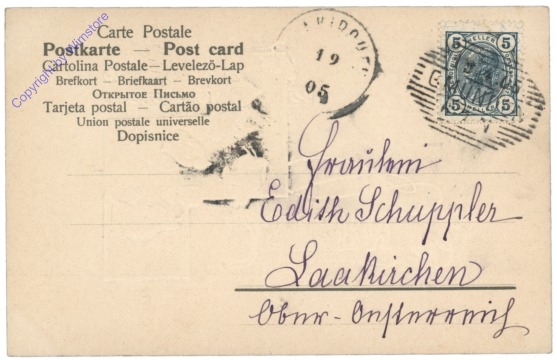 Carte Postale
Postkarte — Post card
Cartolina Postale — Levelező-Lap
Brefkort — Briefkaart — Brevkort
Открытое Письмо
Tarjeta postal — Cartão postal
Union postale universelle
Dopisnice
Copyright by Wimstore
19
05
5 5
5 5
Fräulein
Edith Schuppler
Laakirchen
Ober-Oesterreich